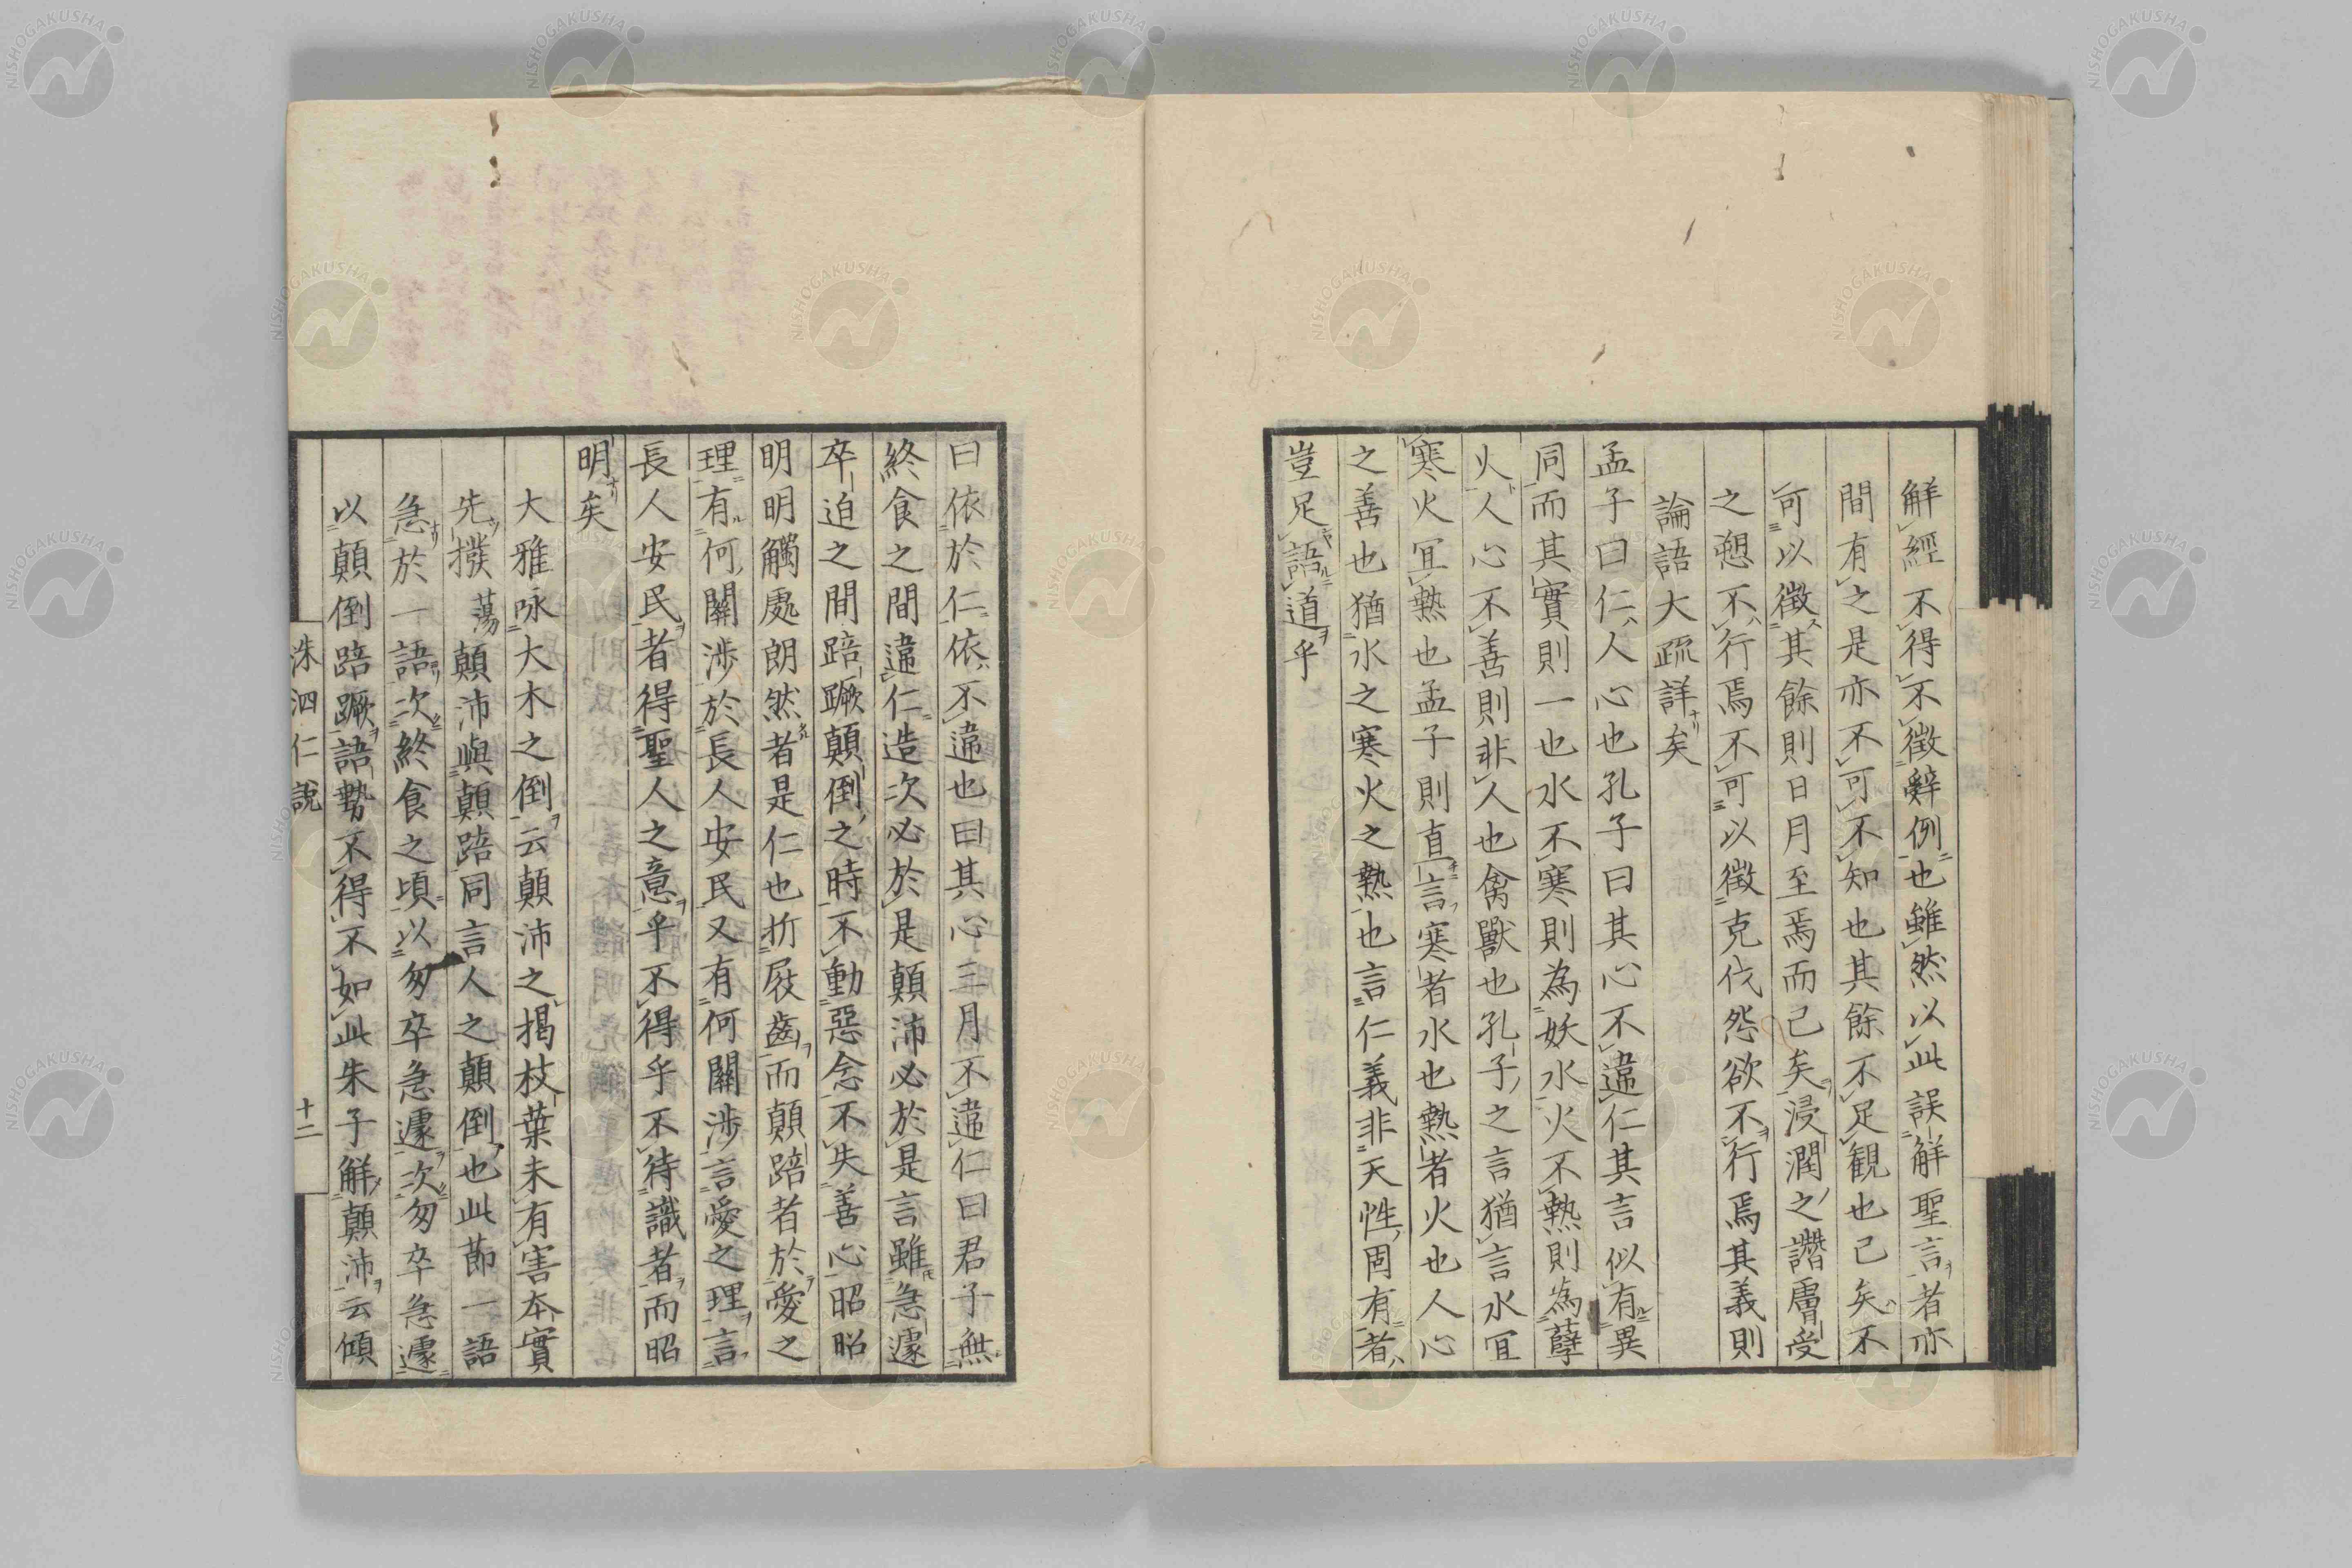 解經不得不徵辭例也雖然以此誤解聖言者亦
間有之是亦不可不知也其餘不足観也已矣不
可以徵其餘則日月至焉而已矣浸潤之譖膚受
之愬不行焉不可以徵克伐怨欲不行焉其義則
論語大疏詳矣
孟子曰仁人心也孔子曰其心不違仁其言似有異
同而其實則一也水不寒則為妖水火不熱則為孽
火人心不善則非人也禽獸也孔子之言猶言水冝
寒火冝熱也孟子則直言寒者水也熱者火也人心
之善也猶水之寒火之熱也言仁義非天性固有者
豈足語道乎
曰依於仁依不違也曰其心三月不違仁曰君子無
終食之間違仁造次必於是顛沛必於是言雖急遽
卒迫之間踣蹶顛倒之時不動惡念不失善心昭昭
明明觸處朗然者是仁也折屐齒而顛踣者於愛之
理有何關渉於長人安民又有何關渉言愛之理言
長人安民者得聖人之意乎不得乎不待識者而昭
明矣
大雅咏大木之倒云顛沛之揭枝葉未有害本實
先撥蕩顛沛與顛踣同言人之顛倒也此莭一語
急於一語次終食之頃以匆卒急遽次匆卒急遽
以顛倒踣蹶語勢不得不如此朱子解顛沛云傾
洙泗仁說
十二
NISHOGAKUSHA